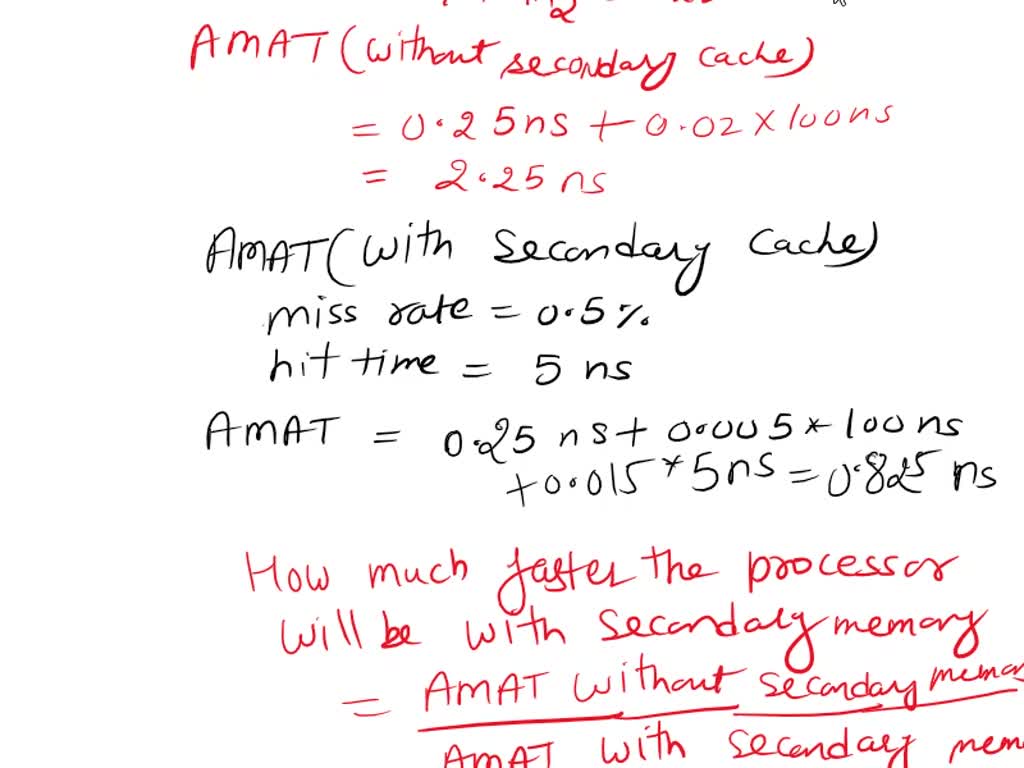 AMAT (without secondary cache)
= 0.25ns + 0.02 × 100ns
= 2.25 ns
AMAT (with secondary cache)
miss rate = 0.5%
hit time = 5 ns
AMAT = 0.25 ns + 0.005 * 100 ns
+ 0.015 * 5ns = 0.825 ns
How much faster the processor
will be with secondary memory
= AMAT without secondary memor
AMAT with secondary mem